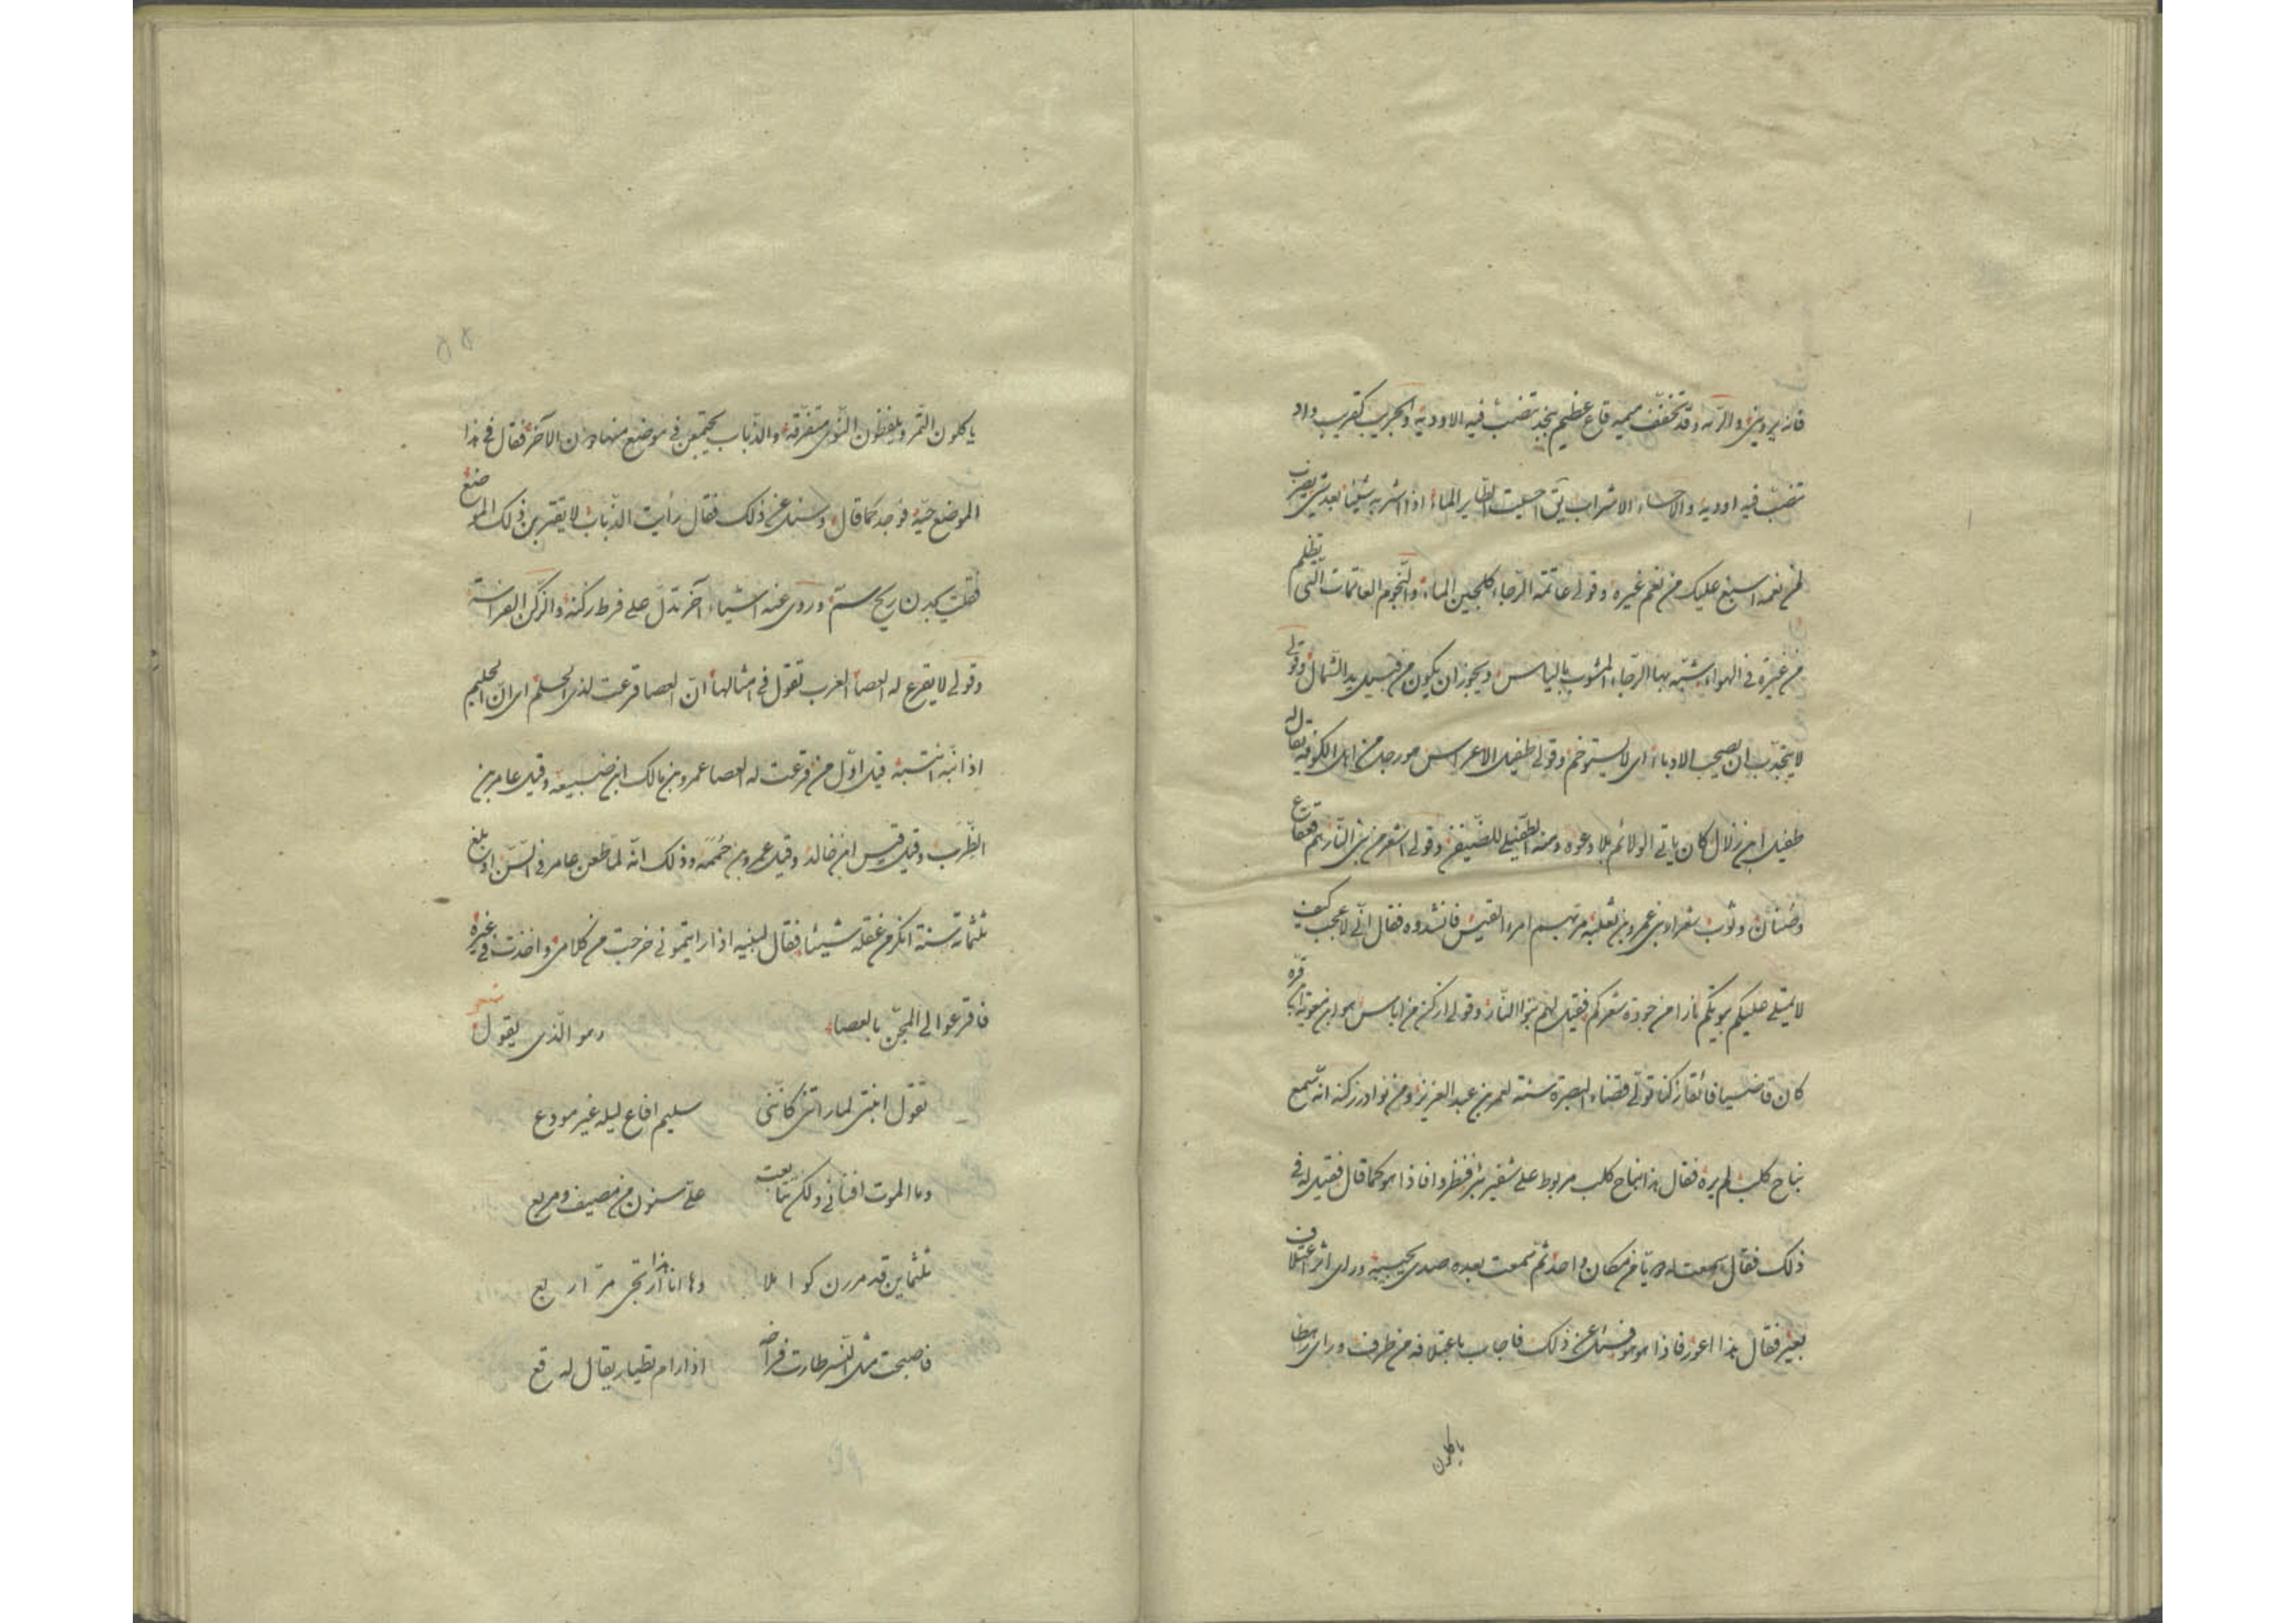 فانه يرويني والرمه وقد تخفف ميمه قاع عظيم بنجد تنصب فيه الاودية والجريب كقريب واد
تنصب فيه اودية والاحساء الاشراب يق احسيت الطاير الماء اذا اشربه شيئا بعد شئ يضرب
لمن نعمه اسبغ عليك من نعم غيره وقولى عاتمة الرجاء كلجين الماء والنجوم العاتمات التى تظلم
من غبرة فى الهواء شبه بها الرجاء المشوب بالياس ويجوز ان يكون من قبيل يد الشمال وقولى
لا يتجذب ان يصحب الادباء اى لا يستوخم وقولى طفيل الاعراس هو رجل من اهل الكوفة يقال له
طفيل ابن زلال كان ياتى الولائم بلا دعوة ومنه الطفيلى للضيفن وقولى اشعر من بنى النار هم قعقاع
وضنان وثوب شعراء بنى عمرو بن ثعلبة مر بهم امرء القيس فانشدوه فقال انى لاعجب كيف
لا يمتلى عليكم بويتكم نارا من جودة شعركم فقيل لهم بنوا النار وقولى ازكن من اياس هو ابن معوية ابن قرة
كان قاضيا فائقا زكنا تولى قضاء البصرة سنة لعمر بن عبد العزيز ومن نوادر زكنه انه سمع
نباح كلب لم يره فقال هذا نباح كلب مربوط على شفير بئر فنظروا فاذا هو كما قال فقيل له فى
ذلك فقال سمعت له دويا من مكان واحد ثم سمعت بعده صدى يجيبه وراى اثر اعتلاف
بعير فقال هذا اعور فاذا هو هو فسئل عن ذلك فاجاب باعتلافه من طرف وراى رهطا
ياكلون
ياكلون التمر ويلفظون النوى متفرقة والذباب يجتمعن فى موضع منها دون الآخر فقال فى هذا
الموضع حية فوجد كما قال وسئل عن ذلك فقال رأيت الذباب لا يقتربن ذلك الموضع
فقلت يجدن ريح سم وروى عنه اشياء آخر تدل على فرط زكنه والزكن الفراسة
وقولى لا يقرع له العصا العرب تقول فى امثالها ان العصا قرعت لذى الحلم اى ان الحليم
اذا نبه انتبه قيل اول من قرعت له العصا عمرو بن مالك ابن ضبيعة وقيل عامر بن
الظرب وقيل قيس ابن خالد وقيل عمرو بن حممة وذلك انه لما طعن عامر فى السن او بلغ
ثلثمائة سنة انكر من عقله شيئا فقال لبنيه اذا رايتمونى خرجت من كلامى واخذت فى غيره
فاقرعوا لى المجن بالعصا وهو الذى يقول شعر
تقول ابنتى لما راتنى كاننى سليم افاع ليله غير مودع
وما الموت افنانى ولكن تتابعت على سنون من مصيف ومربع
ثلث مئين قد مررن كوا ملا وها انا هذا ارتجى مر ار بع
فاصبحت مثل النسر طارت فراخه اذا رام تطيار يقال له قع